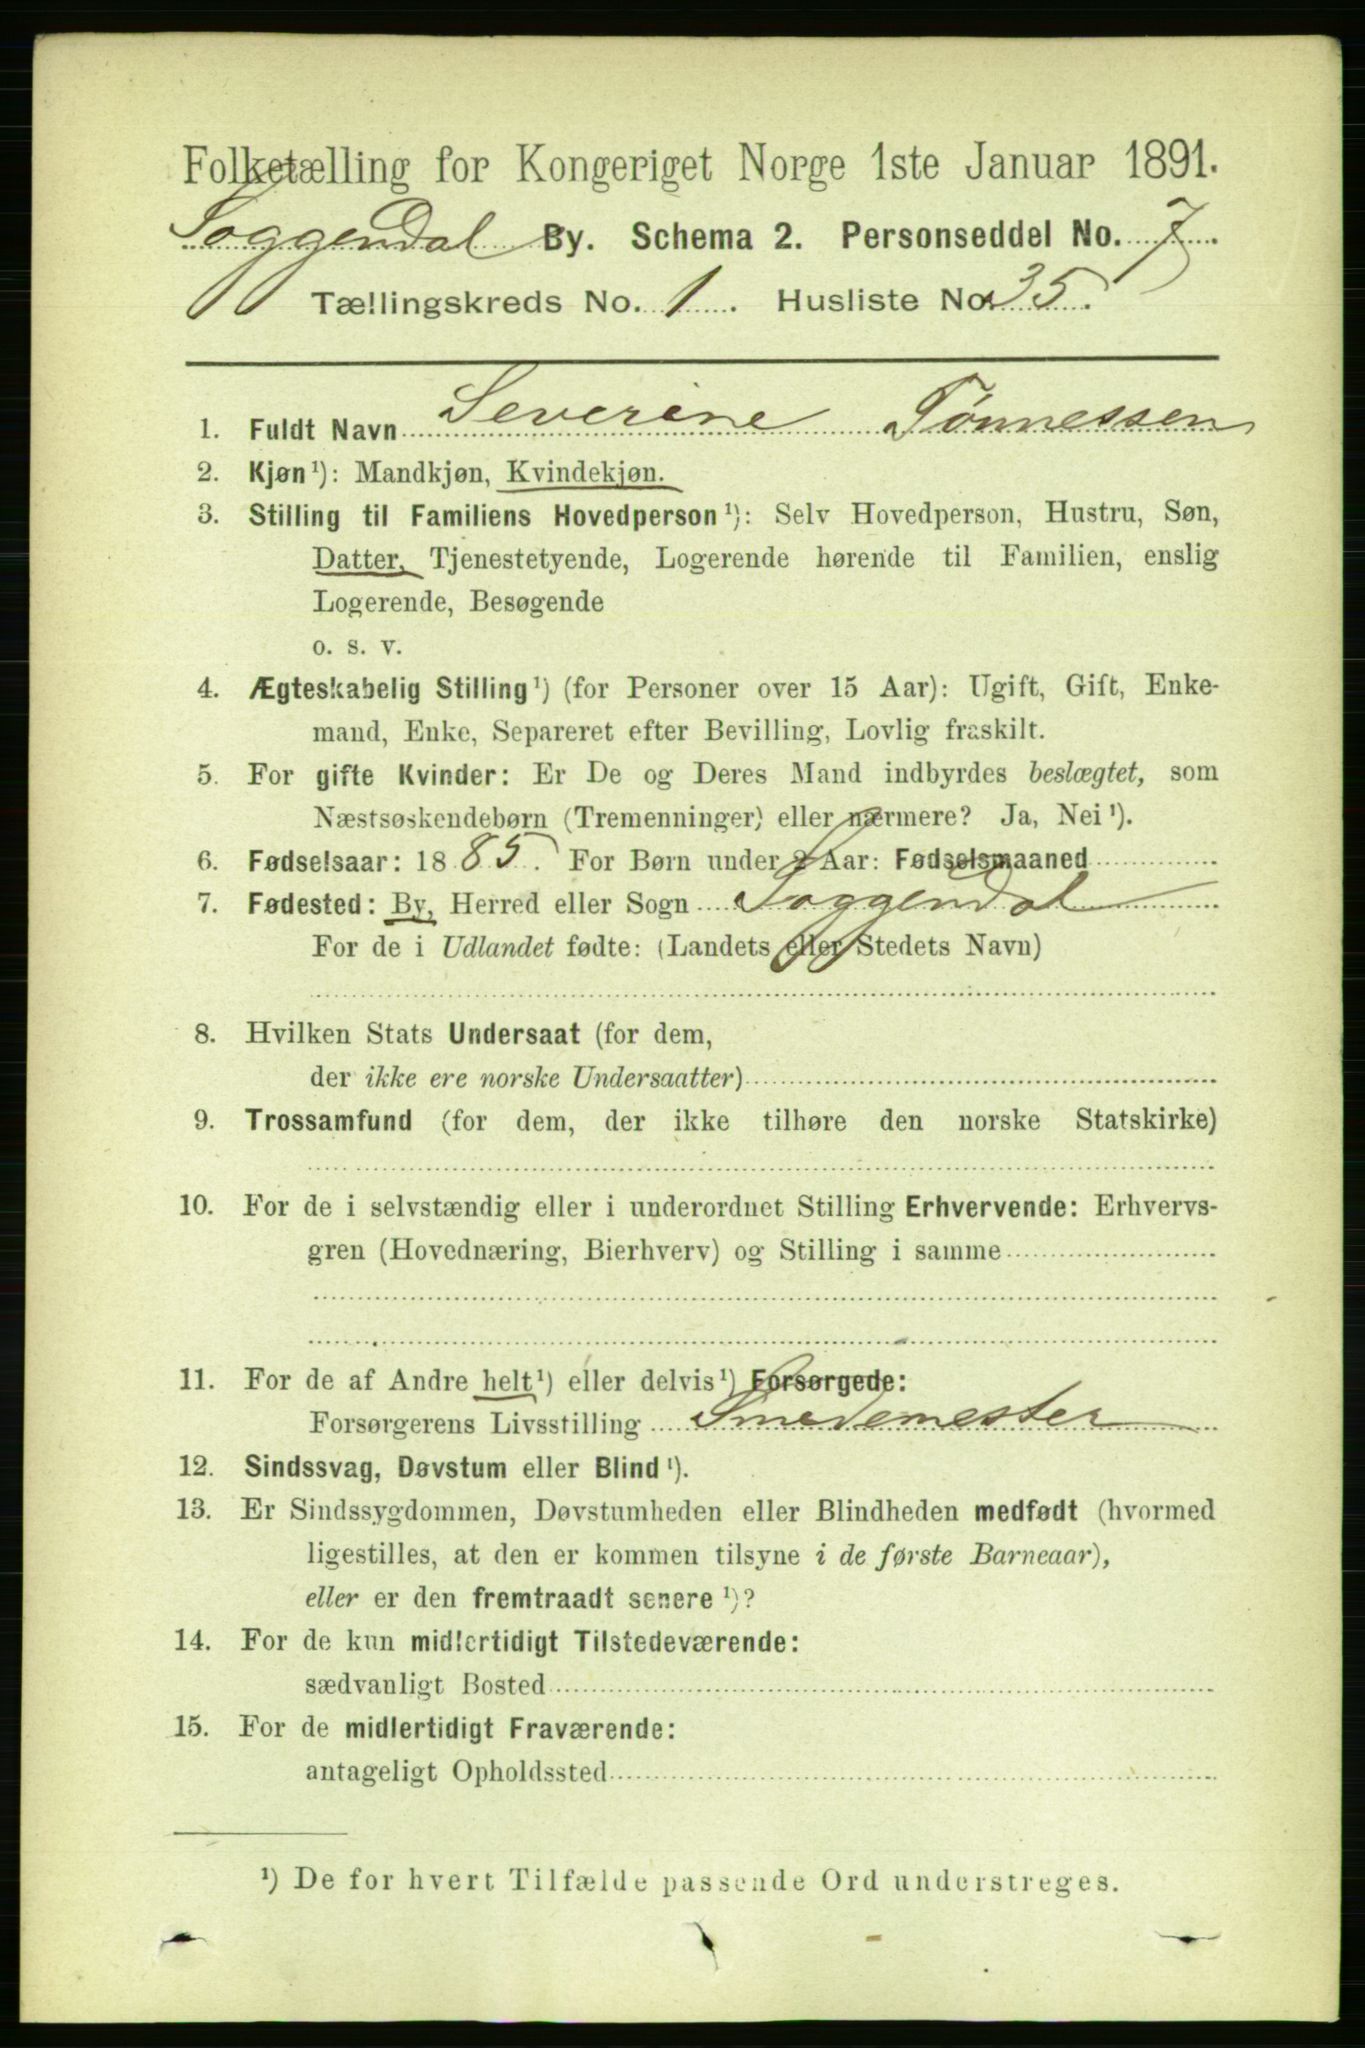 Folketælling for Kongeriget Norge 1ste Januar 1891.
Soggendal By. Schema 2. Personseddel No. 7.
Tællingskreds No. 1. Husliste No. 35.
1. Fuldt Navn Severine Tönnessen
2. Kjøn¹): Mandkjøn, Kvindekjøn.
3. Stilling til Familiens Hovedperson¹): Selv Hovedperson, Hustru, Søn,
Datter, Tjenestetyende, Logerende hørende til Familien, enslig
Logerende, Besøgende
o. s. v.
4. Ægteskabelig Stilling¹) (for Personer over 15 Aar): Ugift, Gift, Enke-
mand, Enke, Separeret efter Bevilling, Lovlig fraskilt.
5. For gifte Kvinder: Er De og Deres Mand indbyrdes beslægtet, som
Næstsøskendebørn (Tremenninger) eller nærmere? Ja, Nei¹).
6. Fødselsaar: 1885. For Børn under 2 Aar: Fødselsmaaned
7. Fødested: By, Herred eller Sogn Soggendal
For de i Udlandet fødte: (Landets eller Stedets Navn)
8. Hvilken Stats Undersaat (for dem,
der ikke ere norske Undersaatter)
9. Trossamfund (for dem, der ikke tilhøre den norske Statskirke)
10. For de i selvstændig eller i underordnet Stilling Erhvervende: Erhvervs-
gren (Hovednæring, Bierhverv) og Stilling i samme
11. For de af Andre helt¹) eller delvis¹) Forsørgede:
Forsørgerens Livsstilling Smedemester
12. Sindssvag, Døvstum eller Blind¹).
13. Er Sindssygdommen, Døvstumheden eller Blindheden medfødt (hvormed
ligestilles, at den er kommen tilsyne i de første Barneaar),
eller er den fremtraadt senere¹)?
14. For de kun midlertidigt Tilstedeværende:
sædvanligt Bosted
15. For de midlertidigt Fraværende:
antageligt Opholdssted
¹) De for hvert Tilfælde passende Ord understreges.